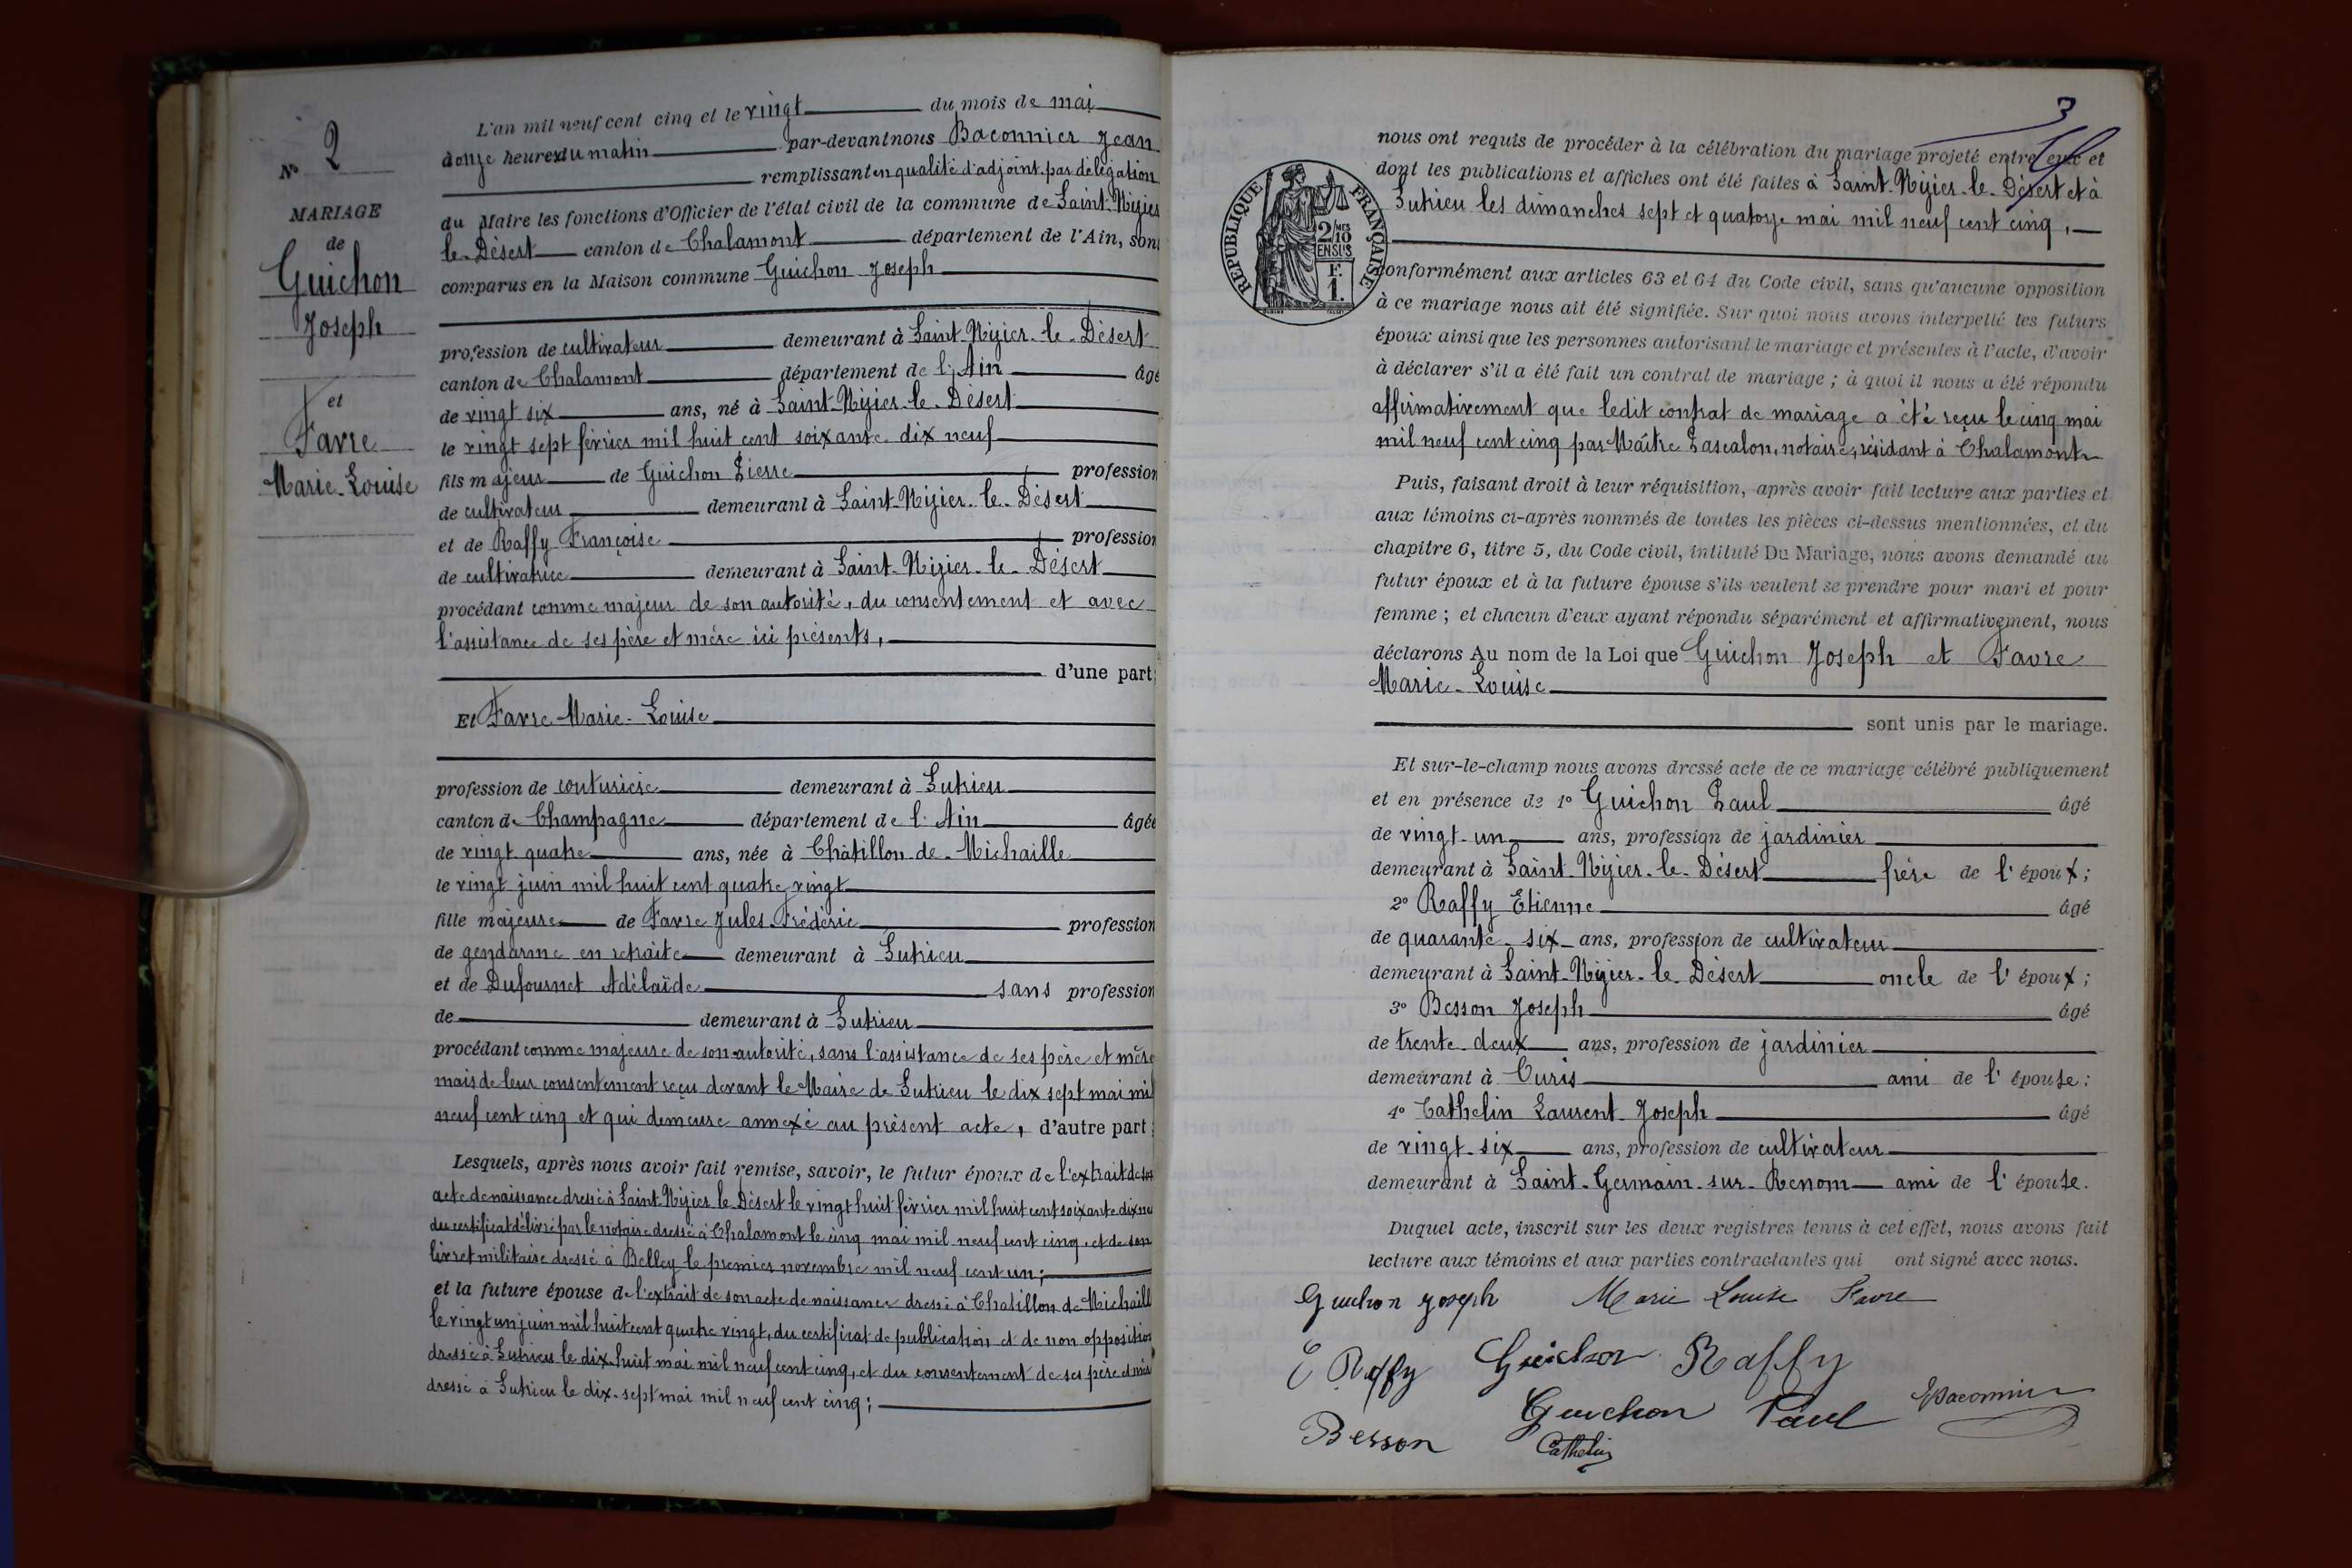 N° 2
MARIAGE
de
Guichon
Joseph
et
Favre
Marie-Louise
L'an mil neuf cent cinq et le vingt du mois de mai
à onze heures du matin par-devant nous Baconnier Jean
remplissant en qualité d'adjoint par délégation
du Maire les fonctions d'Officier de l'état civil de la commune de Saint-Nizier
le-Désert canton de Chalamont département de l'Ain, sont
comparus en la Maison commune Guichon Joseph
profession de cultivateur demeurant à Saint-Nizier-le-Désert
canton de Chalamont département de l'Ain âgé
de vingt six ans, né à Saint-Nizier-le-Désert
le vingt sept février mil huit cent soixante-dix neuf
fils majeur de Guichon Pierre profession
de cultivateur demeurant à Saint-Nizier-le-Désert
et de Raffy Françoise profession
de cultivatrice demeurant à Saint-Nizier-le-Désert
procédant comme majeur de son autorité, du consentement et avec
l'assistance de ses père et mère ici présents,
d'une part;
Et Favre Marie-Louise
profession de couturière demeurant à Sutrieu
canton de Champagne département de l'Ain âgée
de vingt-quatre ans, née à Châtillon-de-Michaille
le vingt juin mil huit cent quatre vingt
fille majeure de Favre Jules Frédéric profession
de gendarme en retraite demeurant à Sutrieu
et de Dufournet Adélaïde sans profession
de demeurant à Sutrieu
procédant comme majeure de son autorité, sans l'assistance de ses père et mère
mais de leur consentement reçu devant le Maire de Sutrieu le dix sept mai mil
neuf cent cinq et qui demeure annexé au présent acte, d'autre part;
Lesquels, après nous avoir fait remise, savoir, le futur époux de l'extrait de son
acte de naissance dressé à Saint-Nizier-le-Désert le vingt huit février mil huit cent soixante dix neu
du certificat délivré par le notaire dressé à Chalamont le cinq mai mil neuf cent cinq, et de son
livret militaire dressé à Belley le premier novembre mil neuf cent un;
et la future épouse de l'extrait de son acte de naissance dressé à Chatillon de Michaill
le vingt un juin mil huit cent quatre vingt, du certificat de publication et de non opposition
dressé à Sutrieu le dix-huit mai mil neuf cent cinq, et du consentement de ses père et mèr
dressé à Sutrieu le dix-sept mai mil neuf cent cinq;
3
RÉPUBLIQUE FRANÇAISE
2/10 MES
EN SUS
F.
1.
nous ont requis de procéder à la célébration du mariage projeté entre eux et
dont les publications et affiches ont été faites à Saint-Nizier-le-Désert et à
Sutrieu les dimanches sept et quatorze mai mil neuf cent cinq,
conformément aux articles 63 et 64 du Code civil, sans qu'aucune opposition
à ce mariage nous ait été signifiée. Sur quoi nous avons interpellé les futurs
époux ainsi que les personnes autorisant le mariage et présentes à l'acte, d'avoir
à déclarer s'il a été fait un contrat de mariage ; à quoi il nous a été répondu
affirmativement que ledit contrat de mariage a été reçu le cinq mai
mil neuf cent cinq par Maître Lascalon, notaire, résidant à Chalamont
Puis, faisant droit à leur réquisition, après avoir fait lecture aux parties et
aux témoins ci-après nommés de toutes les pièces ci-dessus mentionnées, et du
chapitre 6, titre 5, du Code civil, intitulé Du Mariage, nous avons demandé au
futur époux et à la future épouse s'ils veulent se prendre pour mari et pour
femme ; et chacun d'eux ayant répondu séparément et affirmativement, nous
déclarons Au nom de la Loi que Guichon Joseph et Favre
Marie-Louise
sont unis par le mariage.
Et sur-le-champ nous avons dressé acte de ce mariage célébré publiquement
et en présence de 1° Guichon Paul âgé
de vingt-un ans, profession de jardinier
demeurant à Saint-Nizier-le-Désert frère de l'époux;
2° Raffy Etienne âgé
de quarante-six ans, profession de cultivateur
demeurant à Saint-Nizier-le-Désert oncle de l'époux;
3° Besson Joseph âgé
de trente-deux ans, profession de jardinier
demeurant à Curis ami de l'épouse;
4° Cathelin Laurent Joseph âgé
de vingt-six ans, profession de cultivateur
demeurant à Saint-Germain-sur-Renom ami de l'épouse.
Duquel acte, inscrit sur les deux registres tenus à cet effet, nous avons fait
lecture aux témoins et aux parties contractantes qui ont signé avec nous.
Guichon Joseph Marie Louise Favre
E Raffy Guichon Raffy
Guichon Paul Baconnier
Besson Cathelin